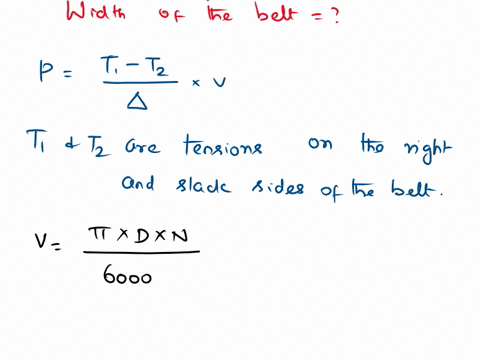 Width of the belt = ?
P = (T₁ - T₂) / Δ × v
T₁ & T₂ are tensions on the right
and slack sides of the belt.
V = (π × D × N) / 6000